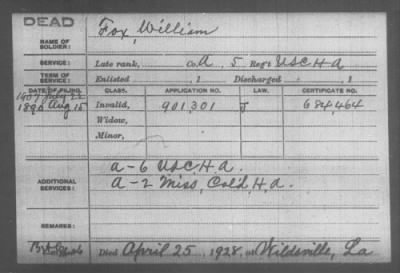 DEAD
NAME OF SOLDIER: Fox, William
SERVICE: Late rank, Co. A, 5 Reg't U.S.C.H.A.
TERM OF SERVICE: Enlisted , 1 Discharged , 1
DATE OF FILING. CLASS. APPLICATION NO. LAW. CERTIFICATE NO.
1907 July 22
1890 Aug 15 Invalid, 901,301 J 684,464
Widow,
Minor,
ADDITIONAL SERVICES: A-6 U.S.C.H.A.
A-2 Miss. Col'd. H.A.
REMARKS:
Died April 25, 1928, at Wildsville, La